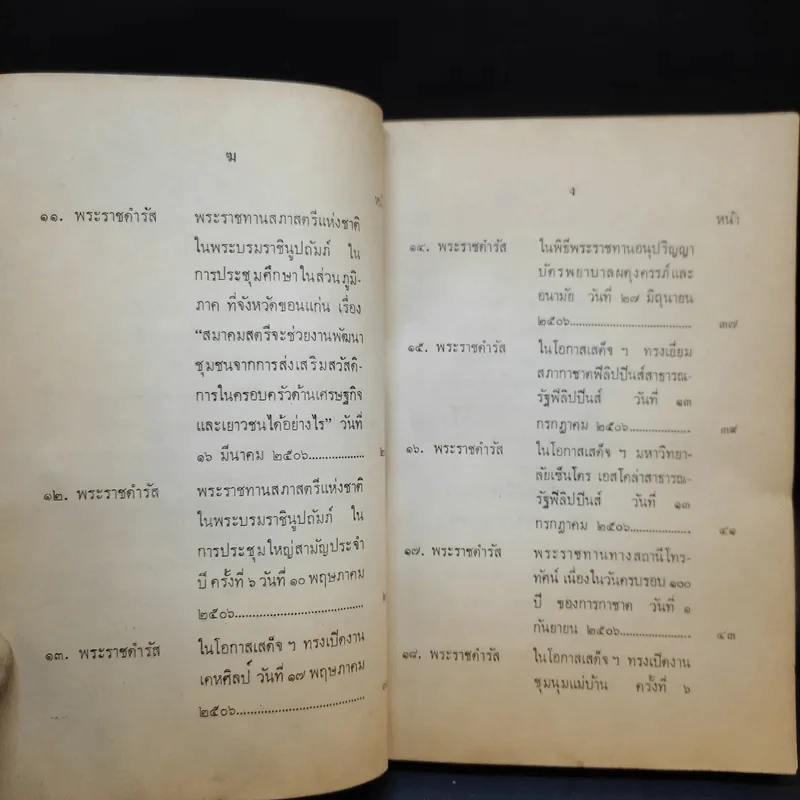 ฆ
๑๑. พระราชดำรัส พระราชทานสภาสตรีแห่งชาติ
ในพระบรมราชินูปถัมภ์ ใน
การประชุมศึกษาในส่วนภูมิ-
ภาค ที่จังหวัดขอนแก่น เรื่อง
“สมาคมสตรีจะช่วยงานพัฒนา
ชุมชนจากการส่งเสริมสวัสดิ-
การในครอบครัวด้านเศรษฐกิจ
และเยาวชนได้อย่างไร” วันที่
๑๖ มีนาคม ๒๕๐๖..................
๑๒. พระราชดำรัส พระราชทานสภาสตรีแห่งชาติ
ในพระบรมราชินูปถัมภ์ ใน
การประชุมใหญ่สามัญประจำ
ปี ครั้งที่ ๖ วันที่ ๑๐ พฤษภาคม
๒๕๐๖..................................
๑๓. พระราชดำรัส ในโอกาสเสด็จ ฯ ทรงเปิดงาน
เคหศิลป์ วันที่ ๑๗ พฤษภาคม
๒๕๐๖..................................
ง
หน้า
๑๔. พระราชดำรัส ในพิธีพระราชทานอนุปริญญา
บัตรพยาบาลผดุงครรภ์และ
อนามัย วันที่ ๒๗ มิถุนายน
๒๕๐๖.................................. ๓๗
๑๕. พระราชดำรัส ในโอกาสเสด็จ ฯ ทรงเยี่ยม
สภากาชาดฟิลิปปินส์สาธารณ-
รัฐฟิลิปปินส์ วันที่ ๑๓
กรกฎาคม ๒๕๐๖.................. ๓๙
๑๖. พระราชดำรัส ในโอกาสเสด็จ ฯ มหาวิทยา-
ลัยเซ็นโตร เอสโคล่าสาธารณ-
รัฐฟิลิปปินส์ วันที่ ๑๓
กรกฎาคม ๒๕๐๖.................. ๔๑
๑๗. พระราชดำรัส พระราชทานทางสถานีโทร-
ทัศน์ เนื่องในวันครบรอบ ๑๐๐
ปี ของการกาชาด วันที่ ๑
กันยายน ๒๕๐๖.................... ๔๓
๑๘. พระราชดำรัส ในโอกาสเสด็จ ฯ ทรงเปิดงาน
ชุมนุมแม่บ้าน ครั้งที่ ๖